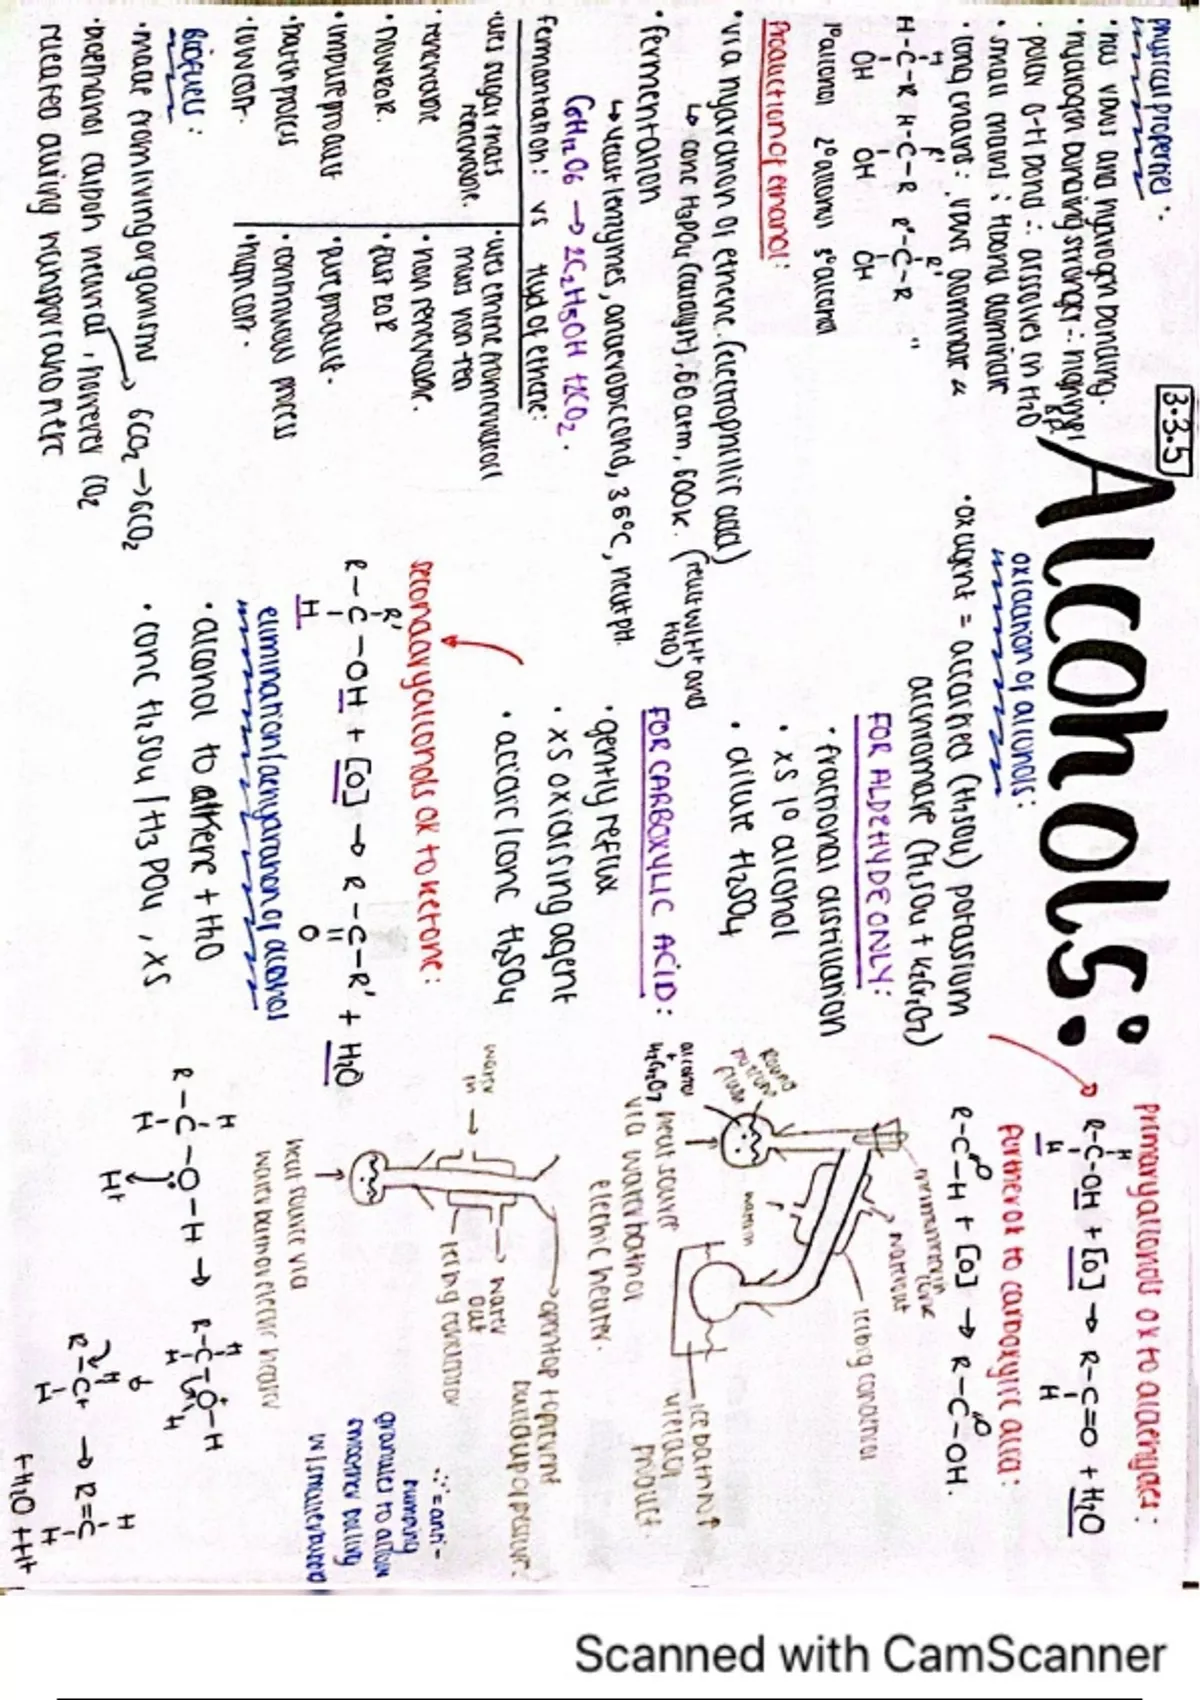 3.3.5
Alcohols:
physical properties:
• has vdws and hydrogen bonding.
• hydrogen bonding stronger ∴ high mp/
bp.
• polar O-H bond ∴ dissolves in H2O
• small chains: H bond dominate
• long chains: vdws dominate
H R' R' "
H-C-R H-C-R R'-C-R
OH OH OH
1° alcohol 2° alcohol 3° alcohol
Production of ethanol:
• via hydration of ethene. (electrophilic add)
↳ conc H3PO4 (catalyst), 60 atm, 600K.
(react with H+ and
H2O)
• fermentation
↳ yeast/enzymes, anaerobic cond, 36°C, neut pH.
C6H12O6 → 2C2H5OH + 2CO2.
fermantation: vs Hyd of ethene:
• uses sugar thats
renewable.
• uses ethene from crude oil
thats non-ren
• renewable
• non renewable.
• slow ROR.
• fast ROR
• impure product
• pure product.
• batch process
• continuous process
• low cost.
• high cost.
Biofuels:
• made from living organisms
6CO2 → 6CO2
• bioethanol carbon neutral, however CO2
released during transport and ferti
oxidation of alcohols:
• ox agent = acidified (H2SO4) potassium
dichromate (H2SO4 + K2Cr2O7)
FOR ALDEHYDE ONLY:
• fractional distillation
• xs 1° alcohol
• dilute H2SO4
FOR CARBOXYLIC ACID:
• gently reflux
• xs oxidising agent
• acidic/conc H2SO4
secondary alcohols ox to ketone:
R'
R-C-OH + [O] → R-C-R' + H2O
H O
elimination/dehydration of alcohol
• alcohol to alkene + H2O
• conc H2SO4/H3PO4, xs
primary alcohols ox to aldehydes:
H
R-C-OH + [O] → R-C=O + H2O
H H
further ox to carboxylic acid:
O O
R-C-H + [O] → R-C-OH.
thermometer
water out
liebig condenser
round
bottom
flask
water in
alcohol
+
K2Cr2O7
heat source
via water bath or
electric heater.
ice bath
product.
open top to prevent
build up of pressure
water
out
liebig condenser
water
in →
heat source via
water bath or electric heater
∴ = anti-
bumping
granules to allow
smoother boiling
w/ smaller bubbles
H
R-C-O-H → R-C-O-H
H H
H+
R-C+ → R=C
H H
+ H2O + H+
Scanned with CamScanner